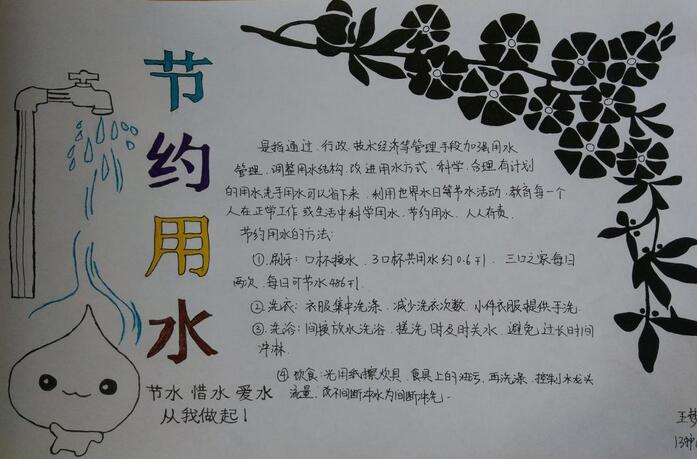 节约用水
是指通过.行政.技术经济等管理手段加强用水
管理.调整用水结构.改进用水方式.科学.合理.有计划
的用水.洗手用水可以省下来.利用世界水日等节水活动.教育每一个
人在正常工作或生活中科学用水.节约用水.人人有责.
节约用水的方法:
①.刷牙:口杯接水.3口杯共用水约0.6升.三口之家每日
两次.每日可节水486升.
②.洗衣:衣服集中洗涤.减少洗衣次数.小件衣服提供手洗.
③.洗浴:间接放水洗浴.搓洗时及时关水.避免过长时间
冲淋.
④.饮食:先用纸擦炊具.食具上的油污.再洗涤.控制水龙头
流量.改不间断冲水为间断冲洗.
节水 惜水 爱水
从我做起!
王梦